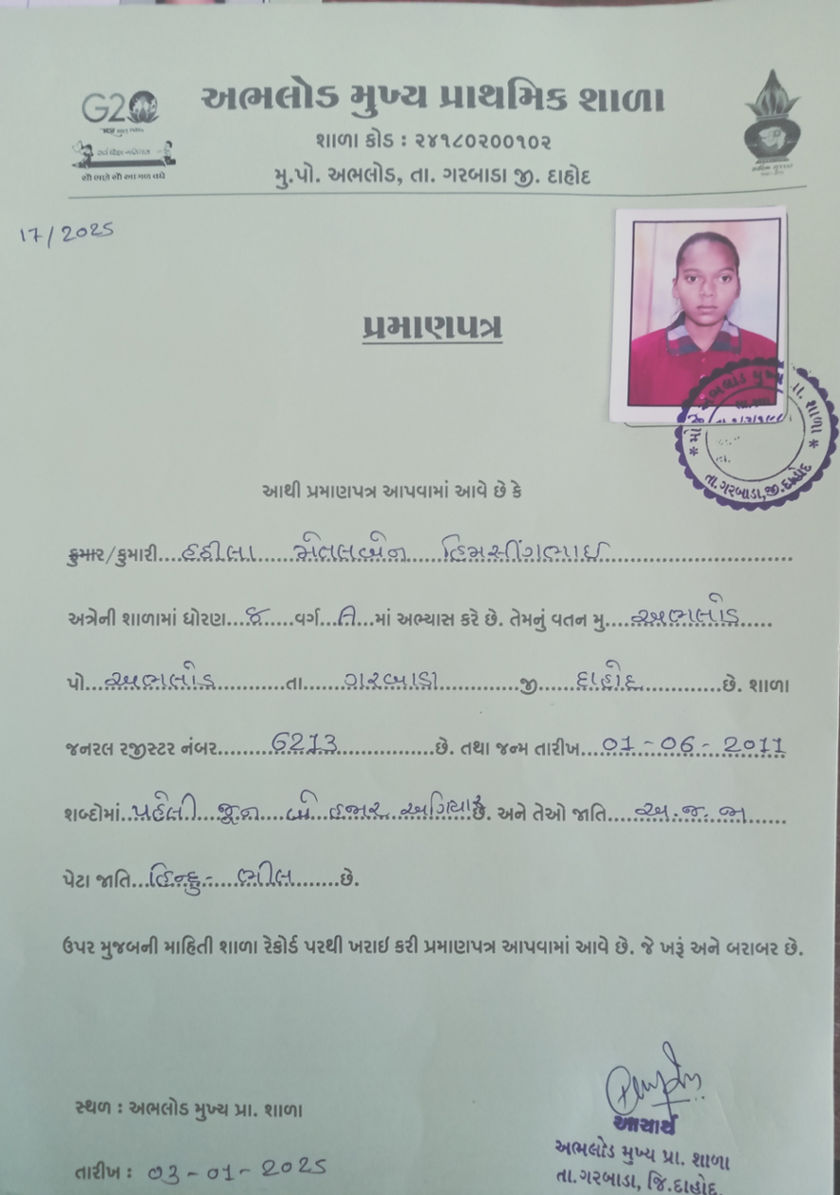 અભલોડ મુખ્ય પ્રાથમિક શાળા
G20
શાળા કોડ : ૨૪૧૮૦૨૦૦૧૦૨
સૌ ભણે સૌ આગળ વધે
મુ.પો. અભલોડ, તા. ગરબાડા જી. દાહોદ
17/2025
પ્રમાણપત્ર
અભલોડ મુખ્ય પ્રા. શાળા
તા.ગરબાડા,જી.દાહોદ
આથી પ્રમાણપત્ર આપવામાં આવે છે કે
કુમાર/કુમારી....હઠીલા મેતલબેન હિમસીંગભાઇ
અત્રેની શાળામાં ધોરણ....૮....વર્ગ...માં અભ્યાસ કરે છે. તેમનું વતન મુ....અભલોડ.....
પો...અભલોડ............તા......ગરબાડા............જી.....દાહોદ............છે. શાળા
જનરલ રજીસ્ટર નંબર........6213...............છે. તથા જન્મ તારીખ...01-06-2011
શબ્દોમાં..પહેલી....જૂન...બે...હજાર..અગિયાર છે. અને તેઓ જાતિ....અ.જ.જા......
પેટા જાતિ...હિન્દુ-....ભીલ.......છે.
ઉપર મુજબની માહિતી શાળા રેકોર્ડ પરથી ખરાઇ કરી પ્રમાણપત્ર આપવામાં આવે છે. જે ખરૂં અને બરાબર છે.
સ્થળ : અભલોડ મુખ્ય પ્રા. શાળા
તારીખ : ૦૩-૦૧-૨૦૨૫
આચાર્ય
અભલોડ મુખ્ય પ્રા. શાળા
તા.ગરબાડા, જિ.દાહોદ.